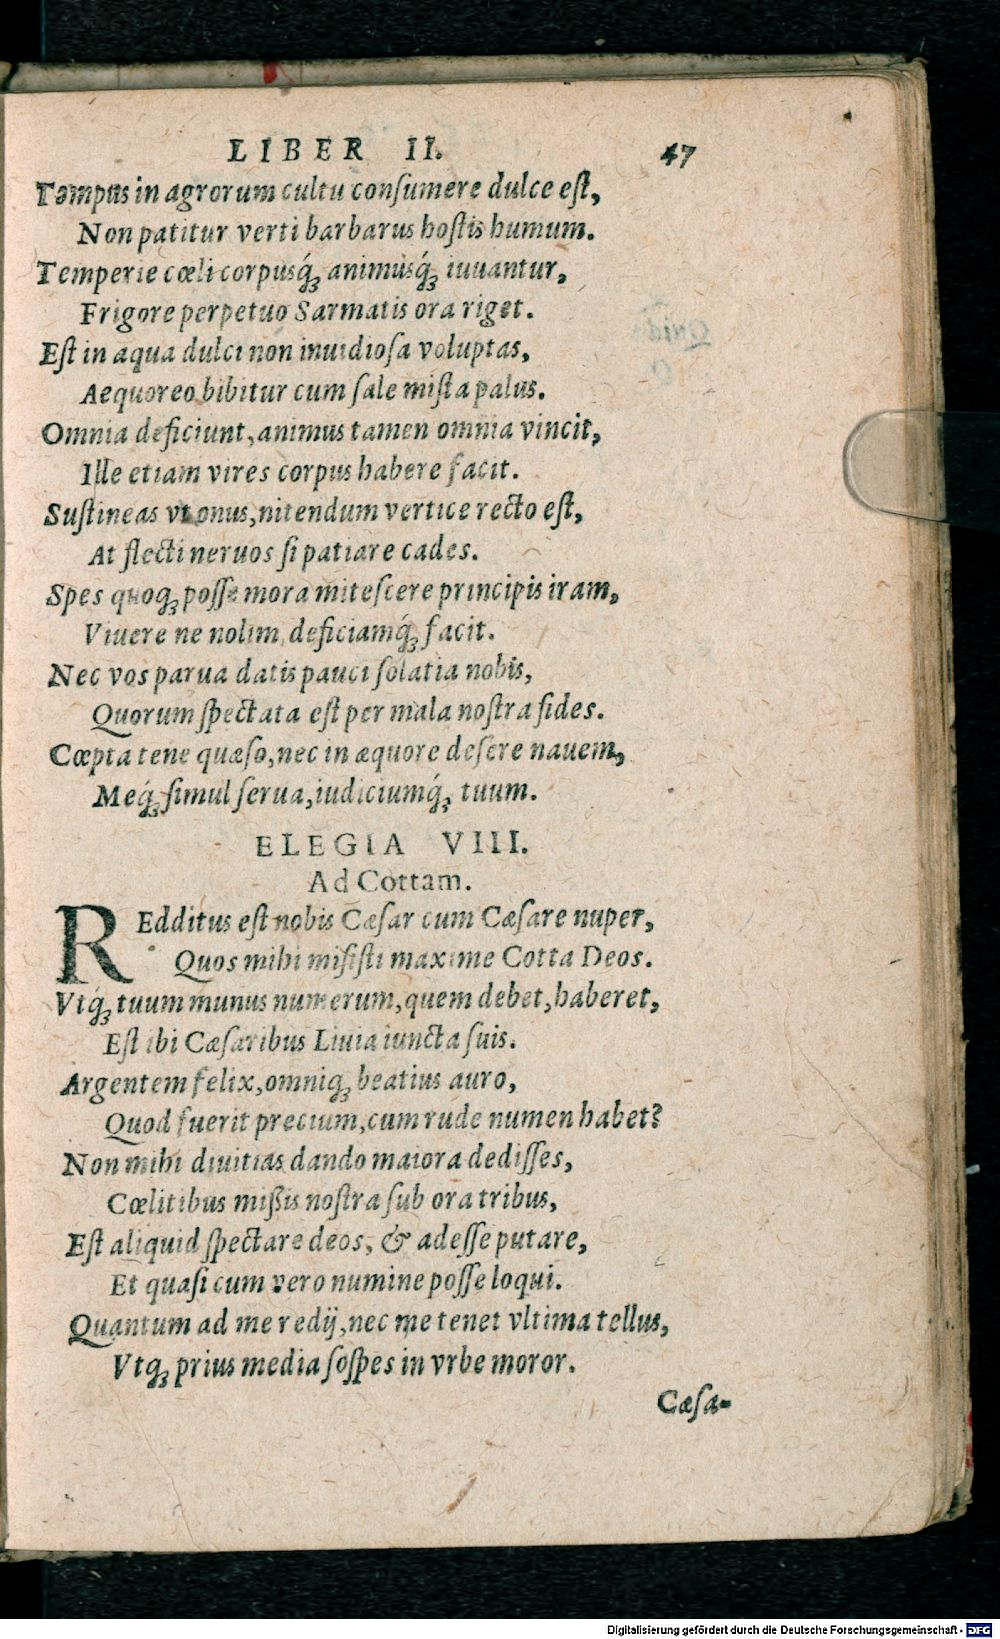 LIBER II. 47
Tempus in agrorum cultu consumere dulce est,
Non patitur verti barbarus hostis humum.
Temperie cœli corpusq́; animusq́; iuuantur,
Frigore perpetuo Sarmatis ora riget.
Est in aqua dulci non inuidiosa voluptas,
Aequoreo bibitur cum sale mista palus.
Omnia deficiunt, animus tamen omnia vincit,
Ille etiam vires corpus habere facit.
Sustineas vt onus, nitendum vertice recto est,
At flecti neruos si patiare cades.
Spes quoq; posse mora mitescere principis iram,
Viuere ne nolim, deficiamq́; facit.
Nec vos parua datis pauci solatia nobis,
Quorum spectata est per mala nostra fides.
Cœpta tene quæso, nec in æquore desere nauem,
Meq́; simul serua, iudiciumq́; tuum.
ELEGIA VIII.
Ad Cottam.
REdditus est nobis Cæsar cum Cæsare nuper,
Quos mihi misisti maxime Cotta Deos.
Vtq́; tuum munus numerum, quem debet, haberet,
Est ibi Cæsaribus Liuia iuncta suis.
Argentem felix, omniq; beatius auro,
Quod fuerit precium, cum rude numen habet?
Non mihi diuitias dando maiora dedisses,
Cœlitibus missis nostra sub ora tribus,
Est aliquid spectare deos, & adesse putare,
Et quasi cum vero numine posse loqui.
Quantum ad me redij, nec me tenet vltima tellus,
Vtq; prius media sospes in vrbe moror.
Cæsa-
Digitalisierung gefördert durch die Deutsche Forschungsgemeinschaft - DFG